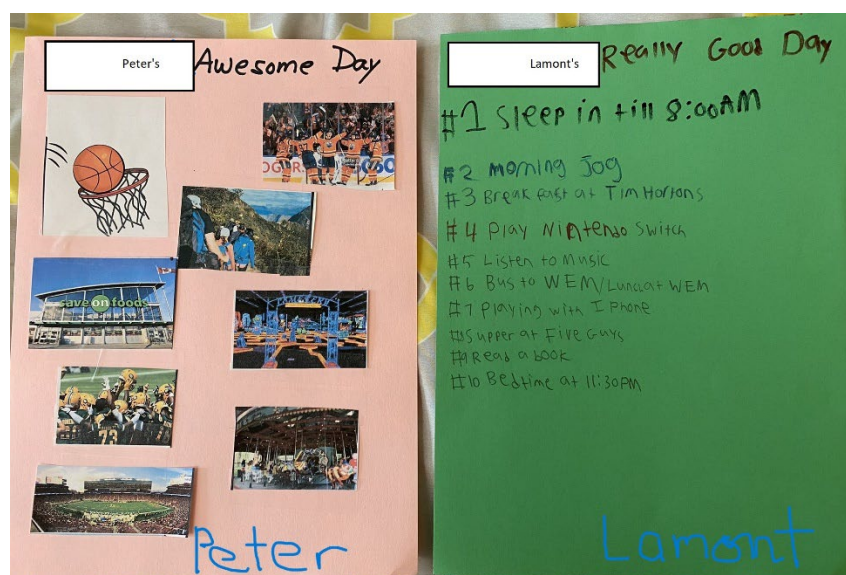 Peter's Awesome Day
save on foods
73
Peter
Lamont's Really Good Day
#1 Sleep in till 8:00AM
#2 Morning Jog
#3 Breakfast at Tim Hortons
#4 Play Nintendo Switch
#5 Listen to Music
#6 Bus to WEM/Lunch at WEM
#7 Playing with I Phone
#8 Supper at Five Guys
#9 Read a book
#10 Bedtime at 11:30PM
Lamont